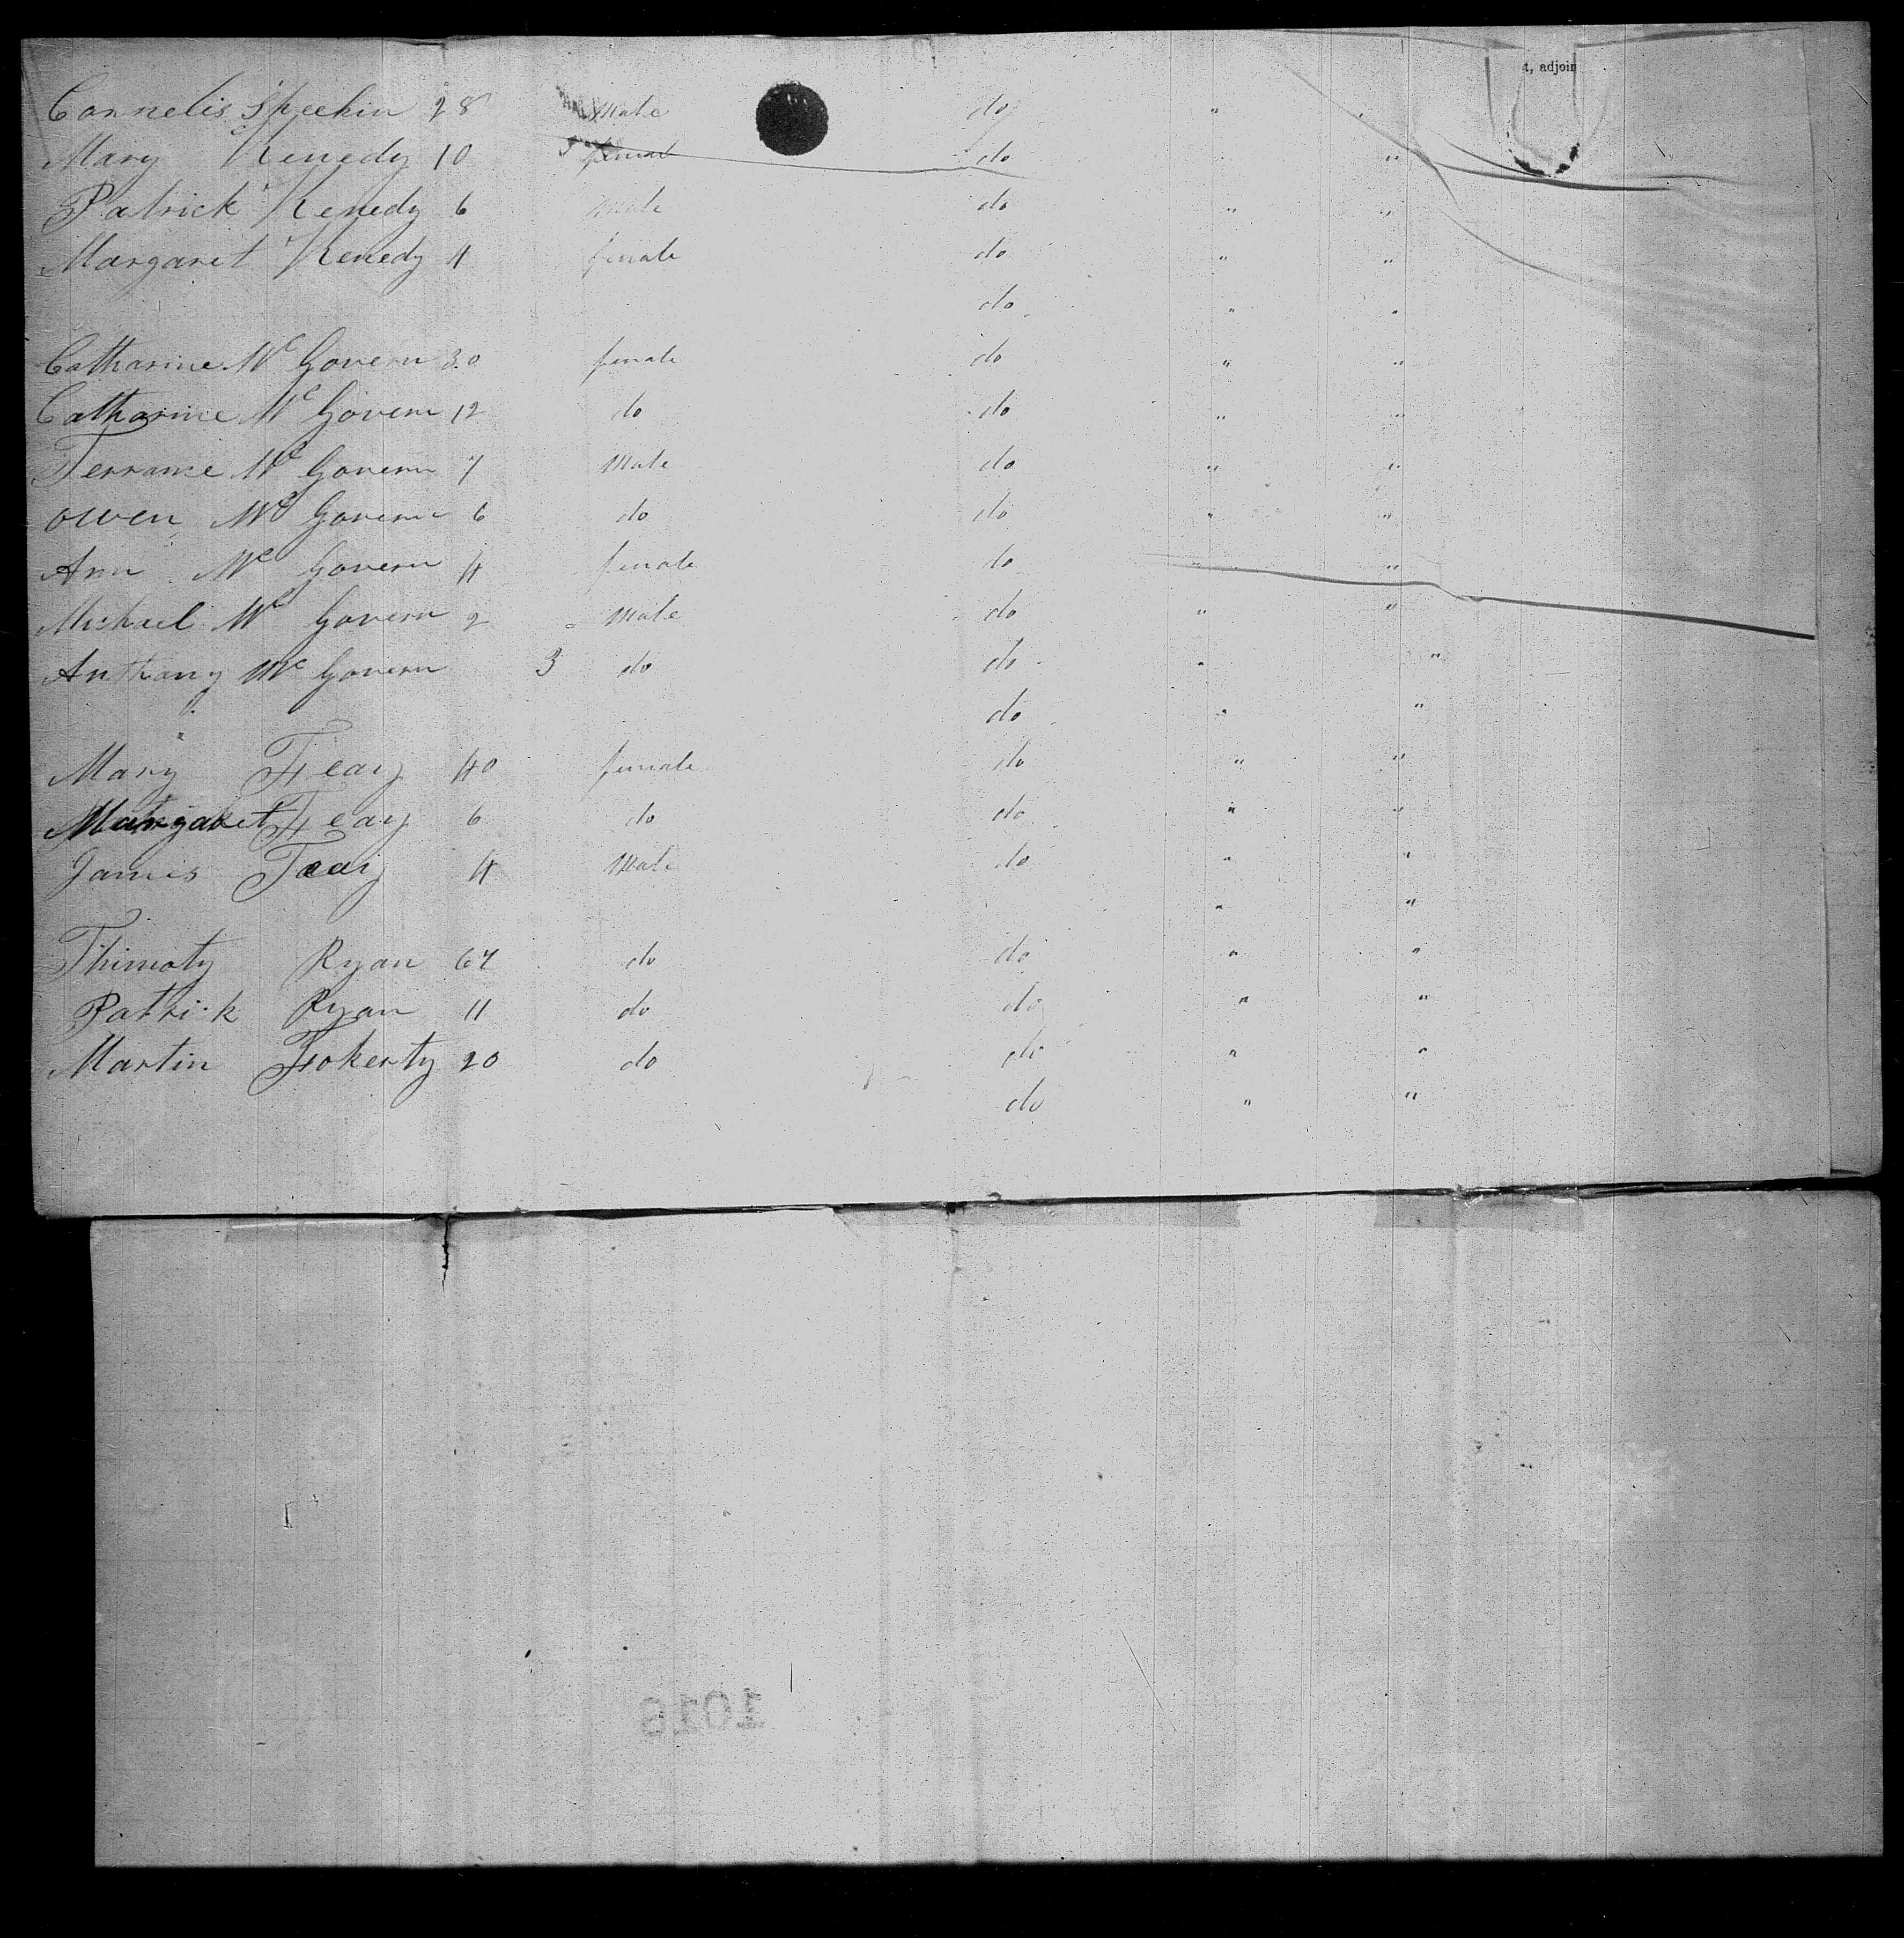 t, adjoin
Cornelis Speekin 28 Male do " "
Mary Kenedy 10 female do "
Patrick Kenedy 6 male do " "
Margaret Kenedy 4 female do " "
do " "
Catharine Mc Govern 30 female do " "
Catharine Mc Govern 12 do do " "
Terrance Mc Govern 7 Male do " "
Owen Mc Govern 6 do do " "
Ann Mc Govern 4 female do " "
Michael Mc Govern 2 Male do " "
Anthany Mc Govern 3 do do " "
do " "
Mary Feay 40 female do " "
Margaret Feay 6 do do " "
James Feay 4 Male do " "
" "
Thimoty Ryan 67 do do " "
Patrick Ryan 11 do do " "
Martin Fokerty 20 do do " "
do " "